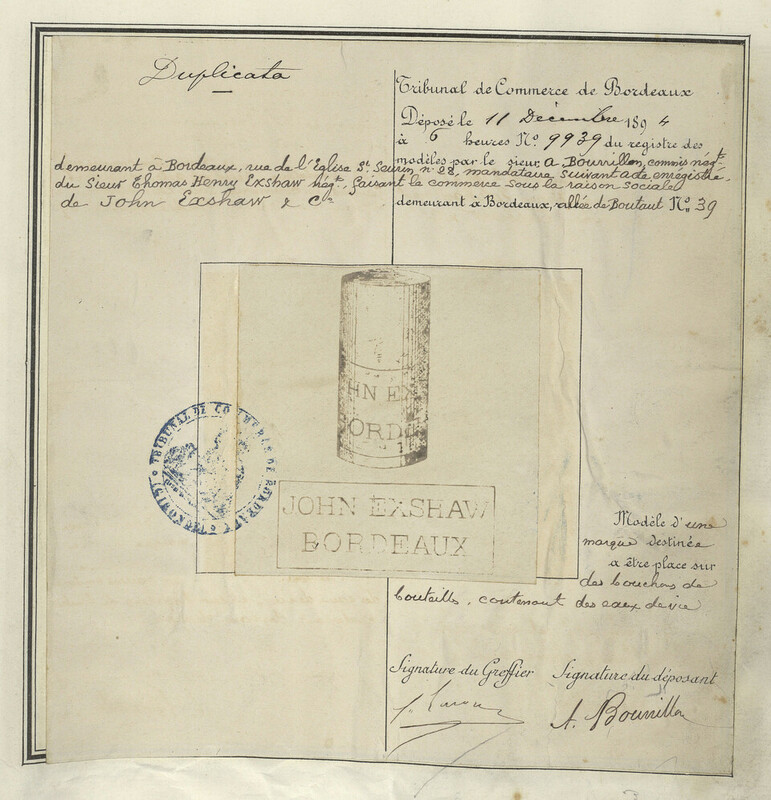 Duplicata
Tribunal de Commerce de Bordeaux
Déposé le 11 Décembre 1894
à 6 heures Nº 9939 du registre des
modèles par le sieur A. Bourrillon, commis négt.
demeurant à Bordeaux, rue de l'Eglise St. Seurin nº 28, mandataire suivant acte enregistré.
du Sieur Thomas Henry Exshaw négt. faisant le commerce sous la raison sociale
de John Exshaw & Cie
demeurant à Bordeaux, allée de Boutaut Nº 39
HN EX
ORDE
TRIBUNAL DE COMMERCE DE BORDEAUX
JOHN EXSHAW
BORDEAUX
Modèle d'une
marque destinée
a être place sur
des bouchons de
bouteills, contenant des eaux de vie
Signature du Greffier
Signature du déposant
A. Bourrillon